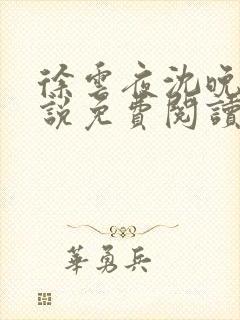 徐雲夜沈晚
說免費閱讀
華勇兵